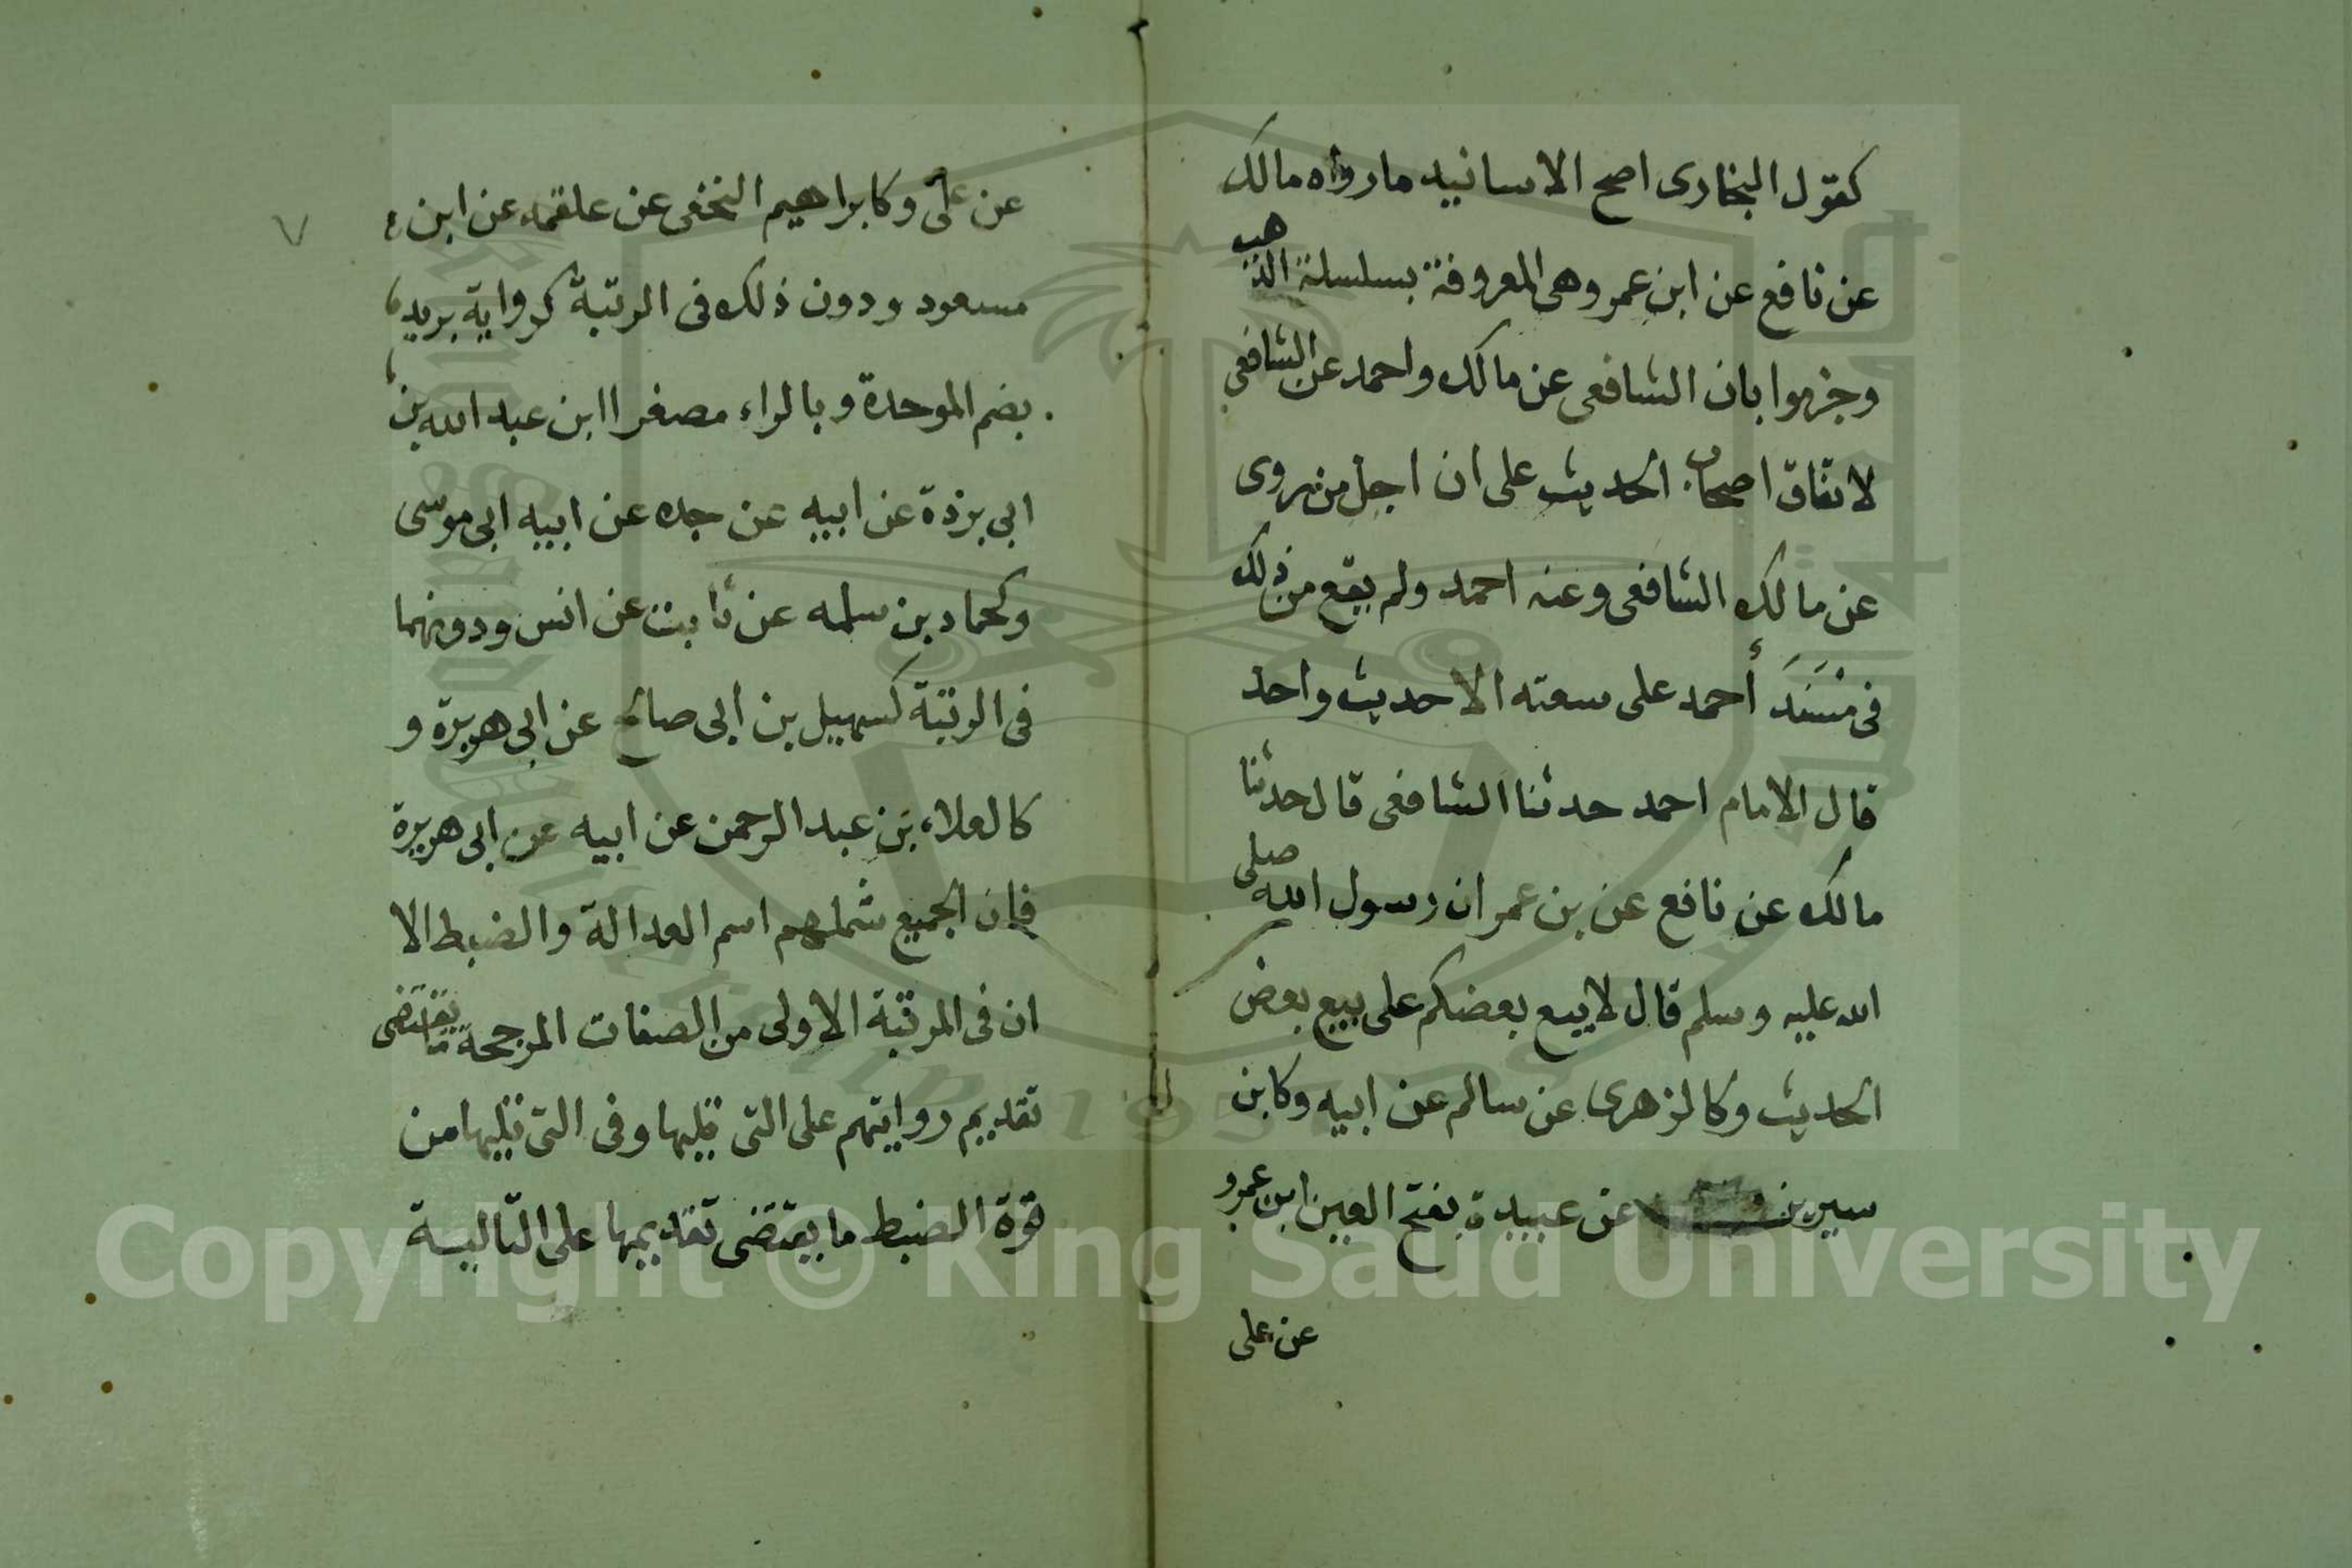 كقول البخارى اصح الاسانيد مارواه مالك
عن نافع عن ابن عمر وهى المعروفة بسلسلة الذهب
وجزموا بان الشافعى عن مالك واحمد عن الشافعى
لاتفاق اصحاب الحديث على ان اجل من روى
عن مالك الشافعى وعنه احمد ولم يقع من ذلك
فى مُسْنَدَ أحمد على سعته الاحديث واحد
قال الامام احمد حدثنا الشافعى قال حدثنا
مالك عن نافع عن بن عمر ان رسول الله صلى
الله عليه وسلم قال لا يبيع بعضكم على بيع بعض
الحديث وكالزهرى عن سالم عن ابيه وكابن
سيرين عن عبيدة بفتح العين ابن عمرو
عن على
٧
عن على وكابراهيم النخعى عن علقمه عن ابن
مسعود ودون ذلك فى الرتبة كرواية بريد
بضم الموحدة وبالراء مصغرا ابن عبد الله بن
ابى بردة عن ابيه عن جده عن ابيه ابى موسى
وكحماد بن سلمه عن ثابت عن انس ودونهما
فى الرتبة كسهيل بن ابى صالح عن ابى هريرة و
كالعلاء بن عبد الرحمن عن ابيه عن ابى هريرة
فان الجميع شملهم اسم العدالة والضبط الا
ان فى المرتبة الاولى من الصفات المرجحة ما يقتضى
تقديم روايتهم على التى تليها وفى التى تليها من
قوة الضبط ما يقتضى تقديمها على التالية
Copyright © King Saud University